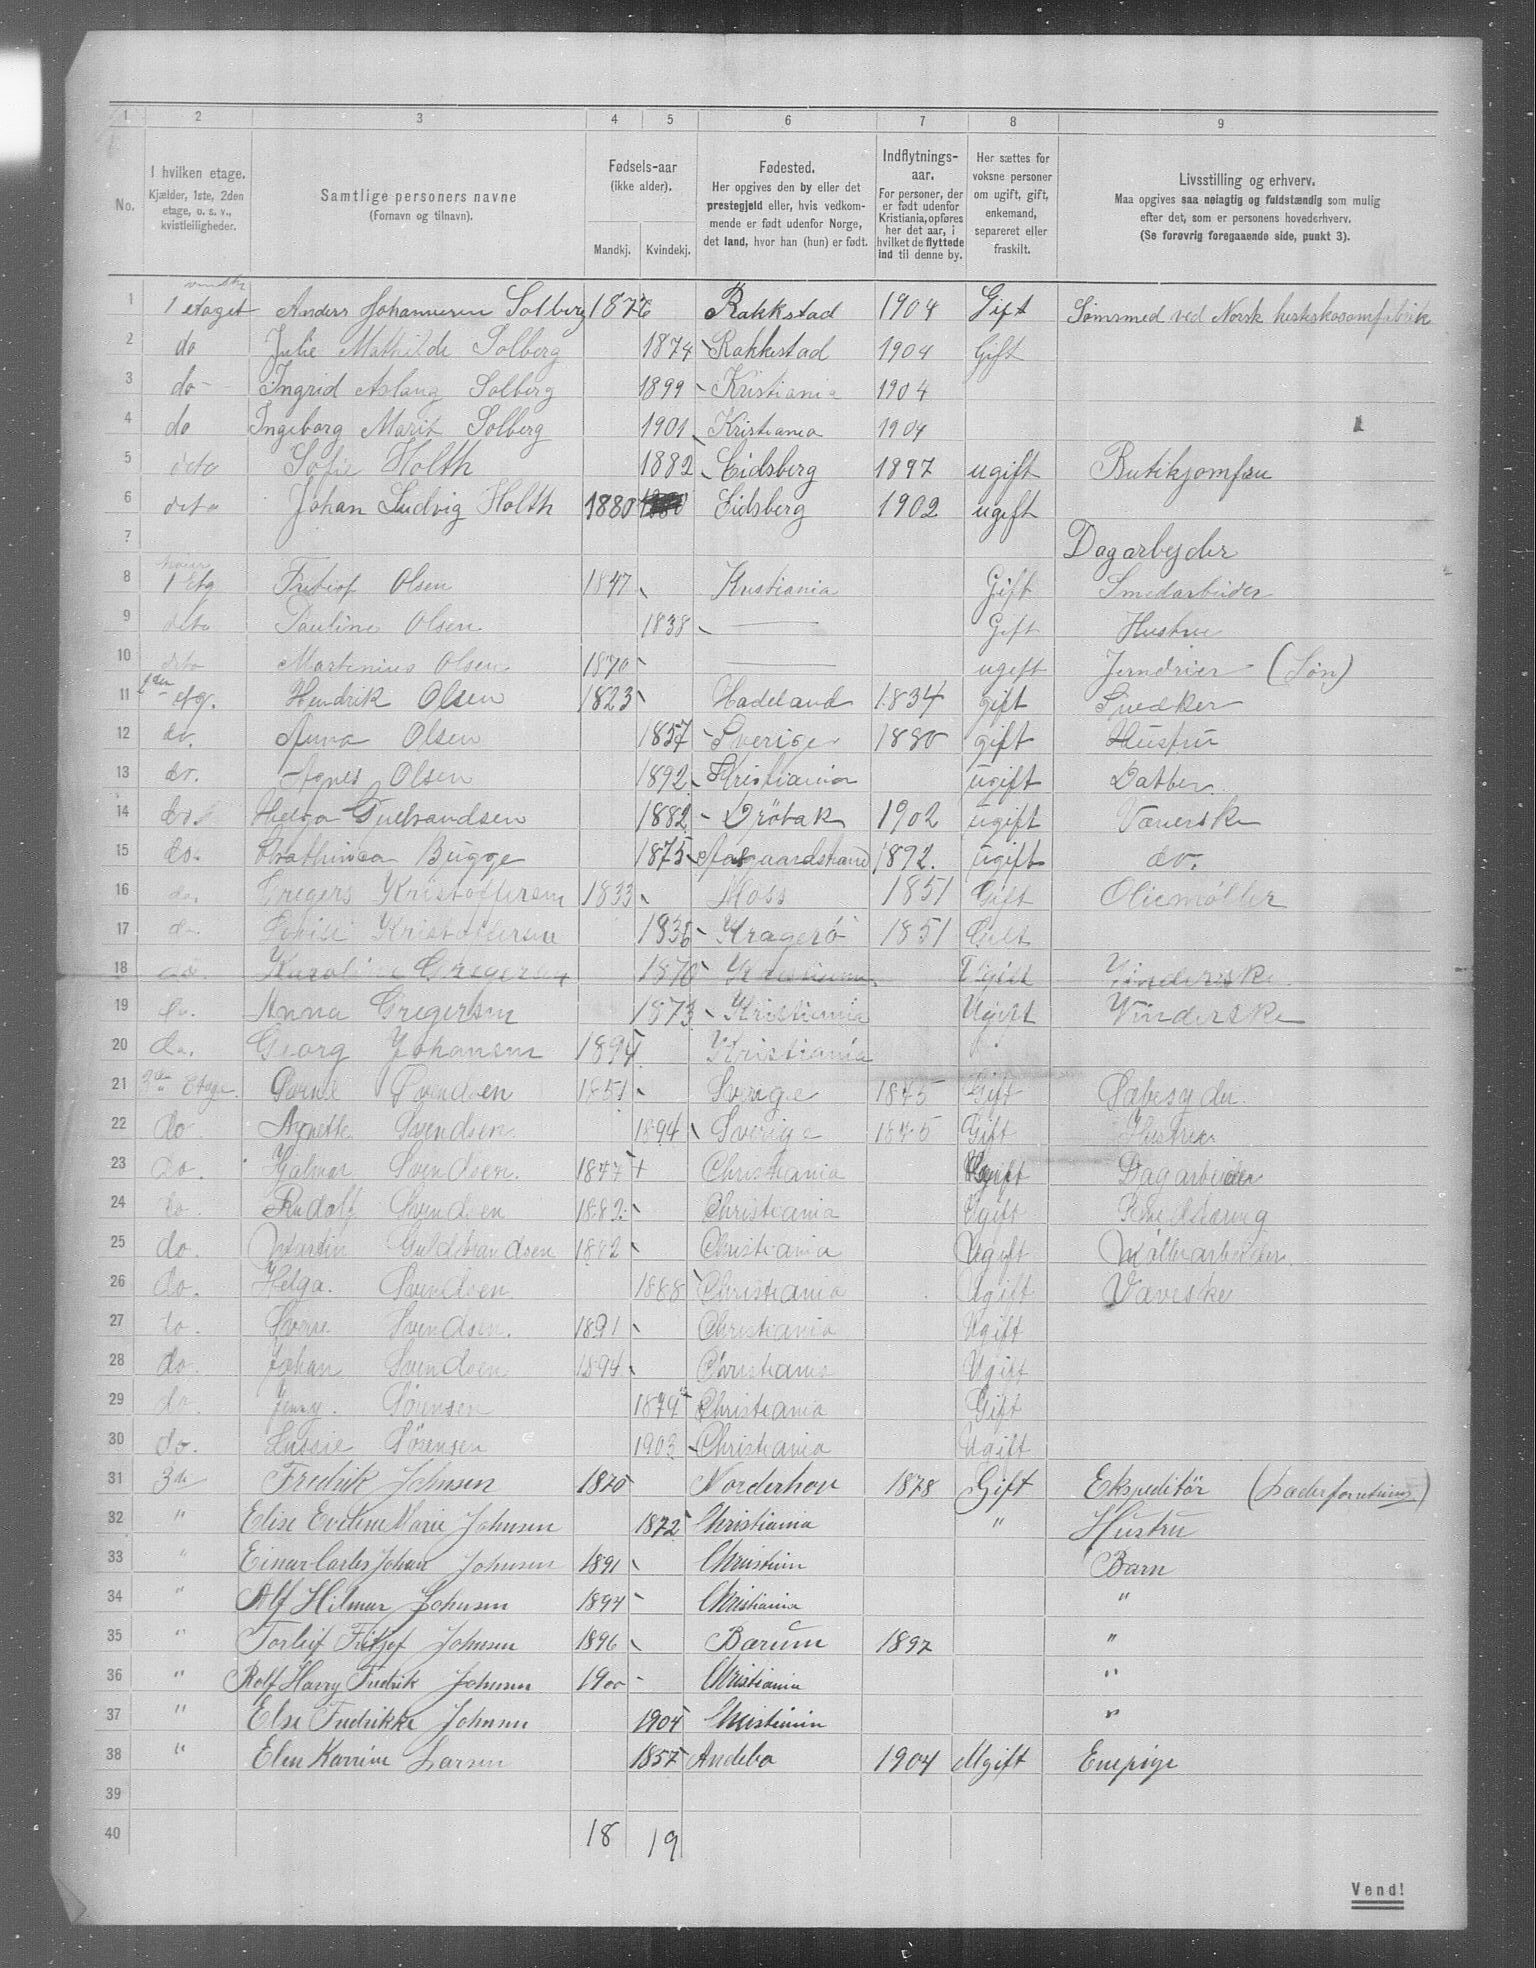 1 2 3 4 5 6 7 8 9
No.
I hvilken etage.
Kjælder, 1ste, 2den
etage, o. s. v.,
kvistleiligheder.
Samtlige personers navne
(Fornavn og tilnavn).
Fødsels-aar
(ikke alder).
Mandkj. Kvindekj.
Fødested.
Her opgives den by eller det
prestegjeld eller, hvis vedkom-
mende er født udenfor Norge,
det land, hvor han (hun) er født.
Indflytnings-
aar.
For personer, der
er født udenfor
Kristiania, opføres
her det aar, i
hvilket de flyttede
ind til denne by.
Her sættes for
voksne personer
om ugift, gift,
enkemand,
separeret eller
fraskilt.
Livsstilling og erhverv.
Maa opgives saa nøiagtig og fuldstændig som mulig
efter det, som er personens hovederhverv.
(Se forøvrig foregaaende side, punkt 3).
1 1 etaget Anders Johannesen Solberg 1876 Rakkstad 1904 Gift Sømsmed ved Norsk hesteskosømfabrik
2 do Julie Mathilde Solberg 1874 Rakkestad 1904 Gift
3 do Ingrid Aslaug Solberg 1899 Kristiania 1904
4 do Ingeborg Marit Solberg 1901 Kristiania 1904
5 deto Sofie Holth 1882 Eidsberg 1897 ugift Butikjomfru
6 deto Johan Ludvig Holth 1880 Eidsberg 1902 ugift
7 Dagarbejder
8 1 Etg Olsen 1847 Kristiania Gift Smedarbeider
9 deto Pauline Olsen 1838 — Gift Hustru
10 deto Martinius Olsen 1870 — ugift Jerndreier (Søn)
11 etg. Hendrik Olsen 1823 Hadeland 1834 gift Snedker
12 do. Anna Olsen 1857 Sverige 1880 gift Hustru
13 do. Agnes Olsen 1892 Kristiania ugift Datter
14 do. Gulbrandsen 1882 Drøbak 1902 ugift Væverske
15 do. Bugge 1875 Aasgaardstrand 1892. ugift do.
16 do. Gregers Kristoffersen 1833 Moss 1851 Gift Oliemøller
17 do. Kristoffersen 1836 Kragerø 1851 Gift
18 do. Karoline Gregersen 1870 Kristiania Ugift Vinderske
19 do. Anna Gregersen 1873 Kristiania Ugift Vinderske
20 do. Georg Johansen 1894 Kristiania
21 Etage. Svendsen 1851 Sverige 1875 Gift Sæbesyder
22 do. Agnette Svendsen 1894 Sverige Gift Hustru
23 do. Hjalmar Svendsen. 1877 Christiania Ugift Dagarbeider
24 do. Rudolf Svendsen 1882 Christiania Ugift
25 do. Martin Guldbrandsen 1882 Christiania Ugift Møllearbeider.
26 do. Helga. Svendsen 1888 Christiania Ugift Væverske
27 do. Svendsen. 1891 Christiania Ugift
28 do. Johan Svendsen 1894 Christiania Ugift
29 do. Jenny. Sørensen 1879 Christiania Gift
30 do. Sørensen 1903 Christiania Ugift
31 3de Fredrik Johnsen 1870 Norderhov 1878 Gift Ekspeditør
32 " Elise Eveline Marie Johnsen 1872 Christiania " Hustru
33 " Einar Carls Johan Johnsen 1891 Christiania Barn
34 " Alf Hilmar Johnsen 1894 Christiania "
35 " Torleif Fritjof Johnsen 1896 Bærum 1897 "
36 " Rolf Harry Fredrik Johnsen 1900 Christiania "
37 " Else Fredrikke Johnsen 1904 Christiania "
38 " Elen Karrine Larsen 1857 Andebo 1904 Ugift Enepige
39
40 18 19
Vend!